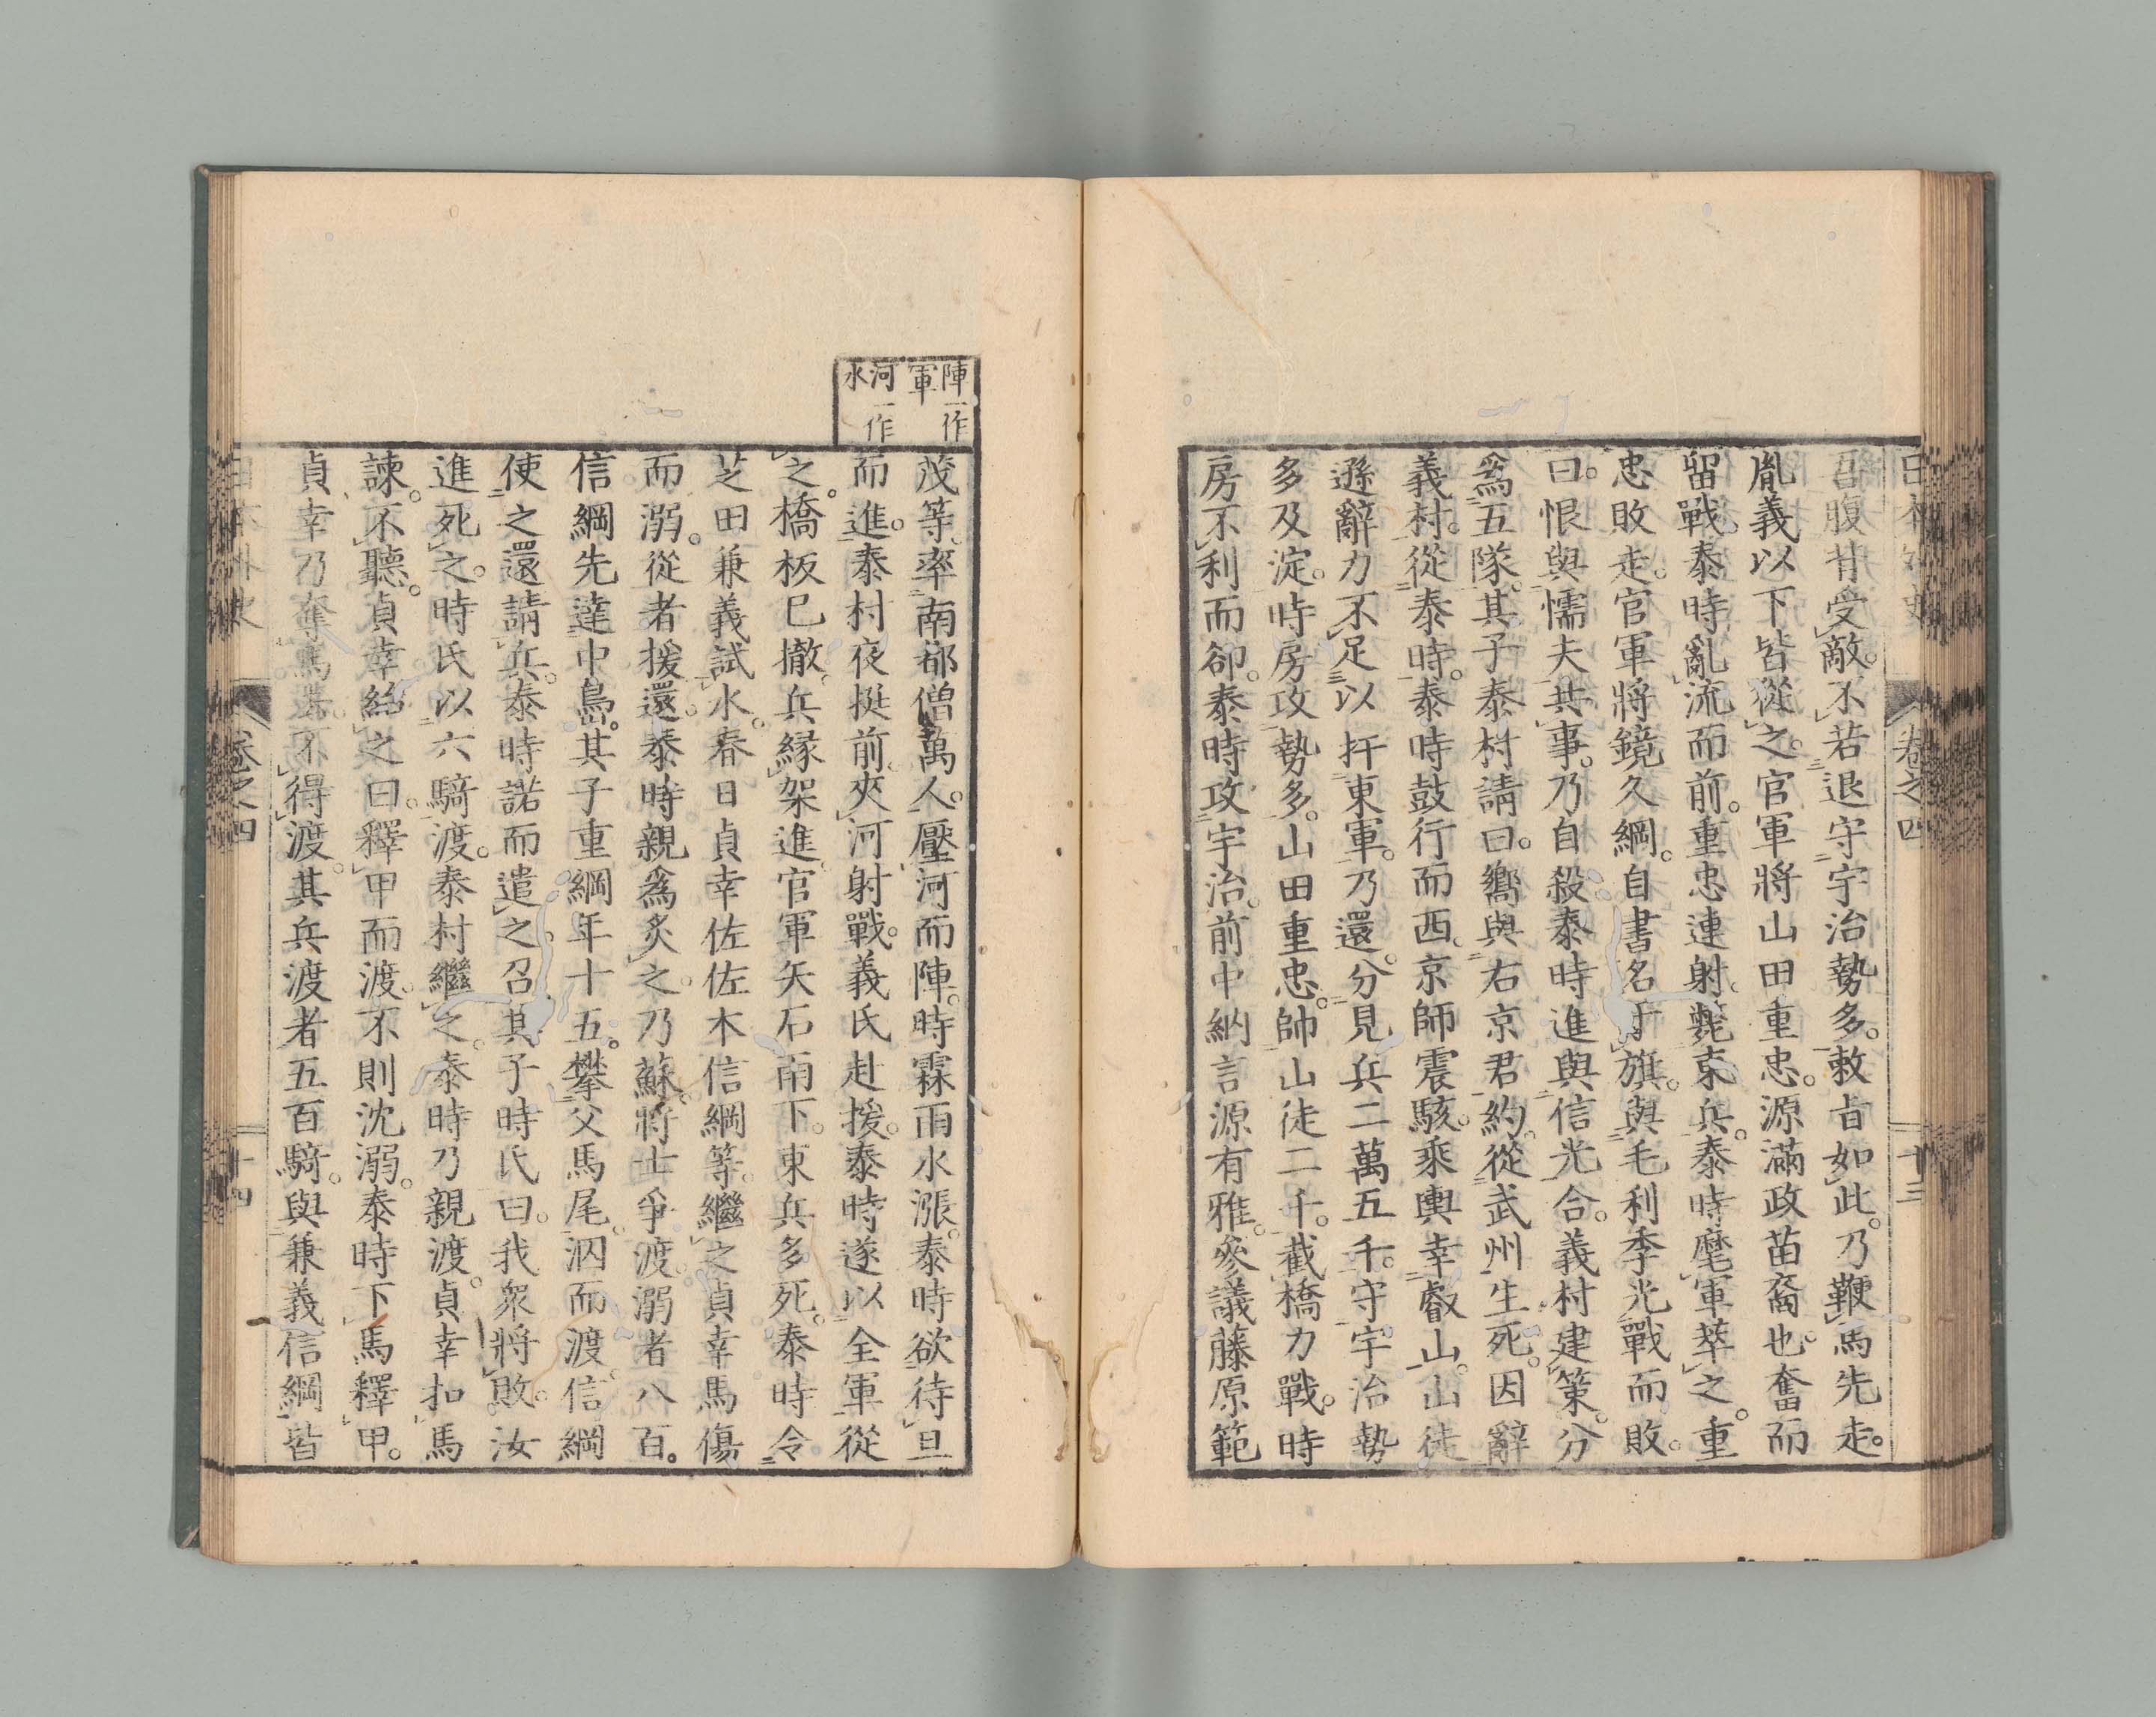 日本外史 卷之四 十三
吾腹背受敵。不若退守宇治勢多。敕旨如此。乃鞭馬先走。
胤義以下皆從之。官軍將山田重忠。源滿政苗裔也。奮而
留戰。泰時亂流而前。重忠連射斃東兵。泰時麾軍萃之。重
忠敗走。官軍將鏡久綱。自書名于旗。與毛利季光戰而敗。
曰。恨與懦夫共事。乃自殺。泰時進與信光合。義村建策。分
爲五隊。其子泰村請曰。嚮與右京君約。從武州生死。因辭
義村。從泰時。泰時鼓行而西。京師震駭。乘輿幸叡山。山徒
遜辭力不足以扞東軍。乃還。分見兵二萬五千。守宇治勢
多及淀。時房攻勢多。山田重忠。帥山徒二千。截橋力戰。時
房不利而卻。泰時攻宇治。前中納言源有雅。參議藤原範
陣一作軍
河一作水
茂等。率南都僧萬人。壓河而陣。時霖雨水漲。泰時欲待旦
而進。泰村夜挺前。夾河射戰。義氏赴援。泰時遂以全軍從
之。橋板已撤。兵緣架進。官軍矢石雨下。東兵多死。泰時令
芝田兼義試水。春日貞幸佐佐木信綱等。繼之。貞幸馬傷
而溺。從者援還。泰時親爲炙之。乃蘇。將士爭渡。溺者八百。
信綱先達中島。其子重綱年十五。攀父馬尾。泅而渡。信綱
使之還請兵。泰時諾而遣之。召其子時氏曰。我衆將敗。汝
進死之。時氏以六騎渡。泰村繼之。泰時乃親渡。貞幸扣馬
諫。不聽。貞幸紿之曰。釋甲而渡。不則沈溺。泰時下馬釋甲。
貞幸乃奪馬逃。不得渡。其兵渡者五百騎。與兼義信綱皆
日本外史 卷之四 十四